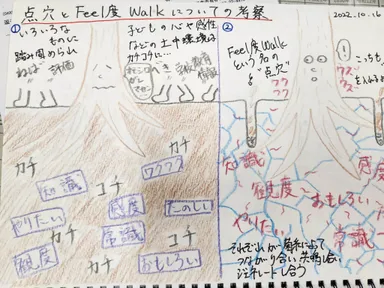 点穴とFeel度Walkについての考察
2022.10.16
①
いろいろな
ものに
踏み固められ
ねば
評価
子どもの心や感性
などの土中環境は
カチコチに…
べき
学校教育
カチ
カチ
コチ
ワクワク
知識
コチ
感度
たのしい
やりたい
カチ
常識
コチ
観度
カチ
おもしろい
②
Feel度Walk
という名の
"点穴"
こっちも
知識
感度
観度
おもしろい
やりたい
常識
それぞれが
つながり合い共鳴し合い
し合う